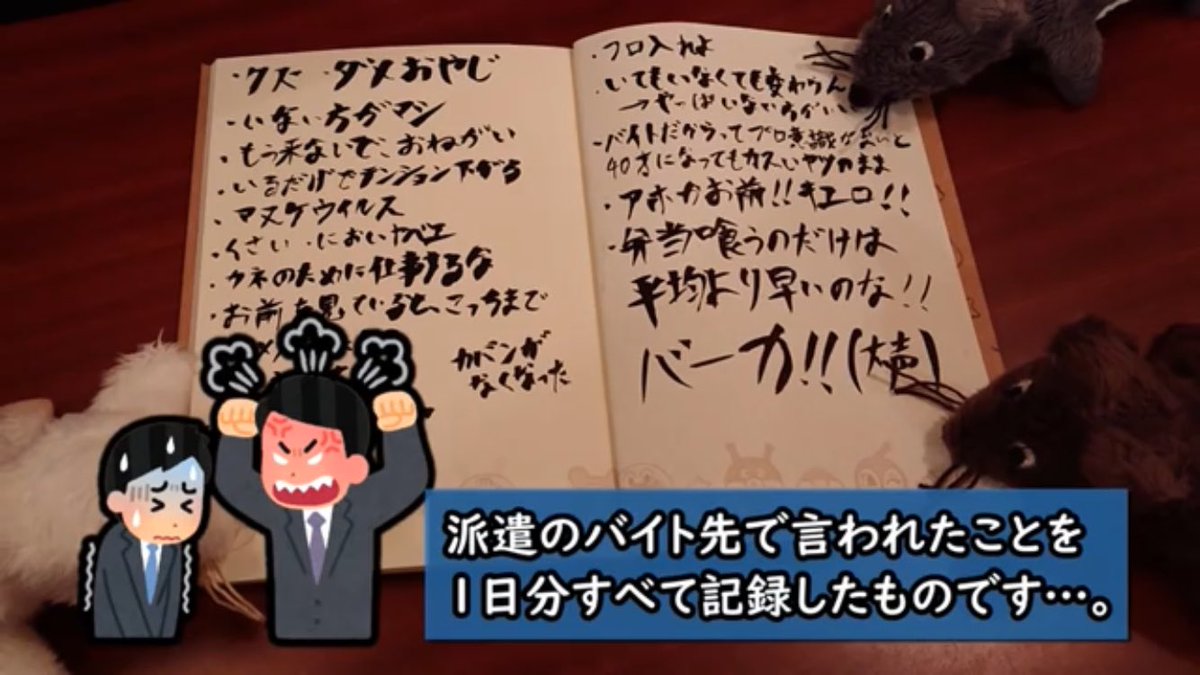 ・クズ ・ダメおやじ
・いない方がマシ
・もう来ないで、おねがい
・いるだけでテンション下がる
・マヌケウイルス
・くさい ・においヤバエ
・カネのために仕事するな
・お前を見ているとこっちまで
カバンが
なくなった
・フロ入れよ
・いてもいなくても変わらん
→やっぱいない方がいい
・バイトだからってプロ意識がないと
40才になってもカスいヤツのまま
・アホかお前!!キエロ!!
・弁当喰うのだけは
平均より早いのな!!
バーカ!!(大声)
派遣のバイト先で言われたことを
1日分すべて記録したものです…。